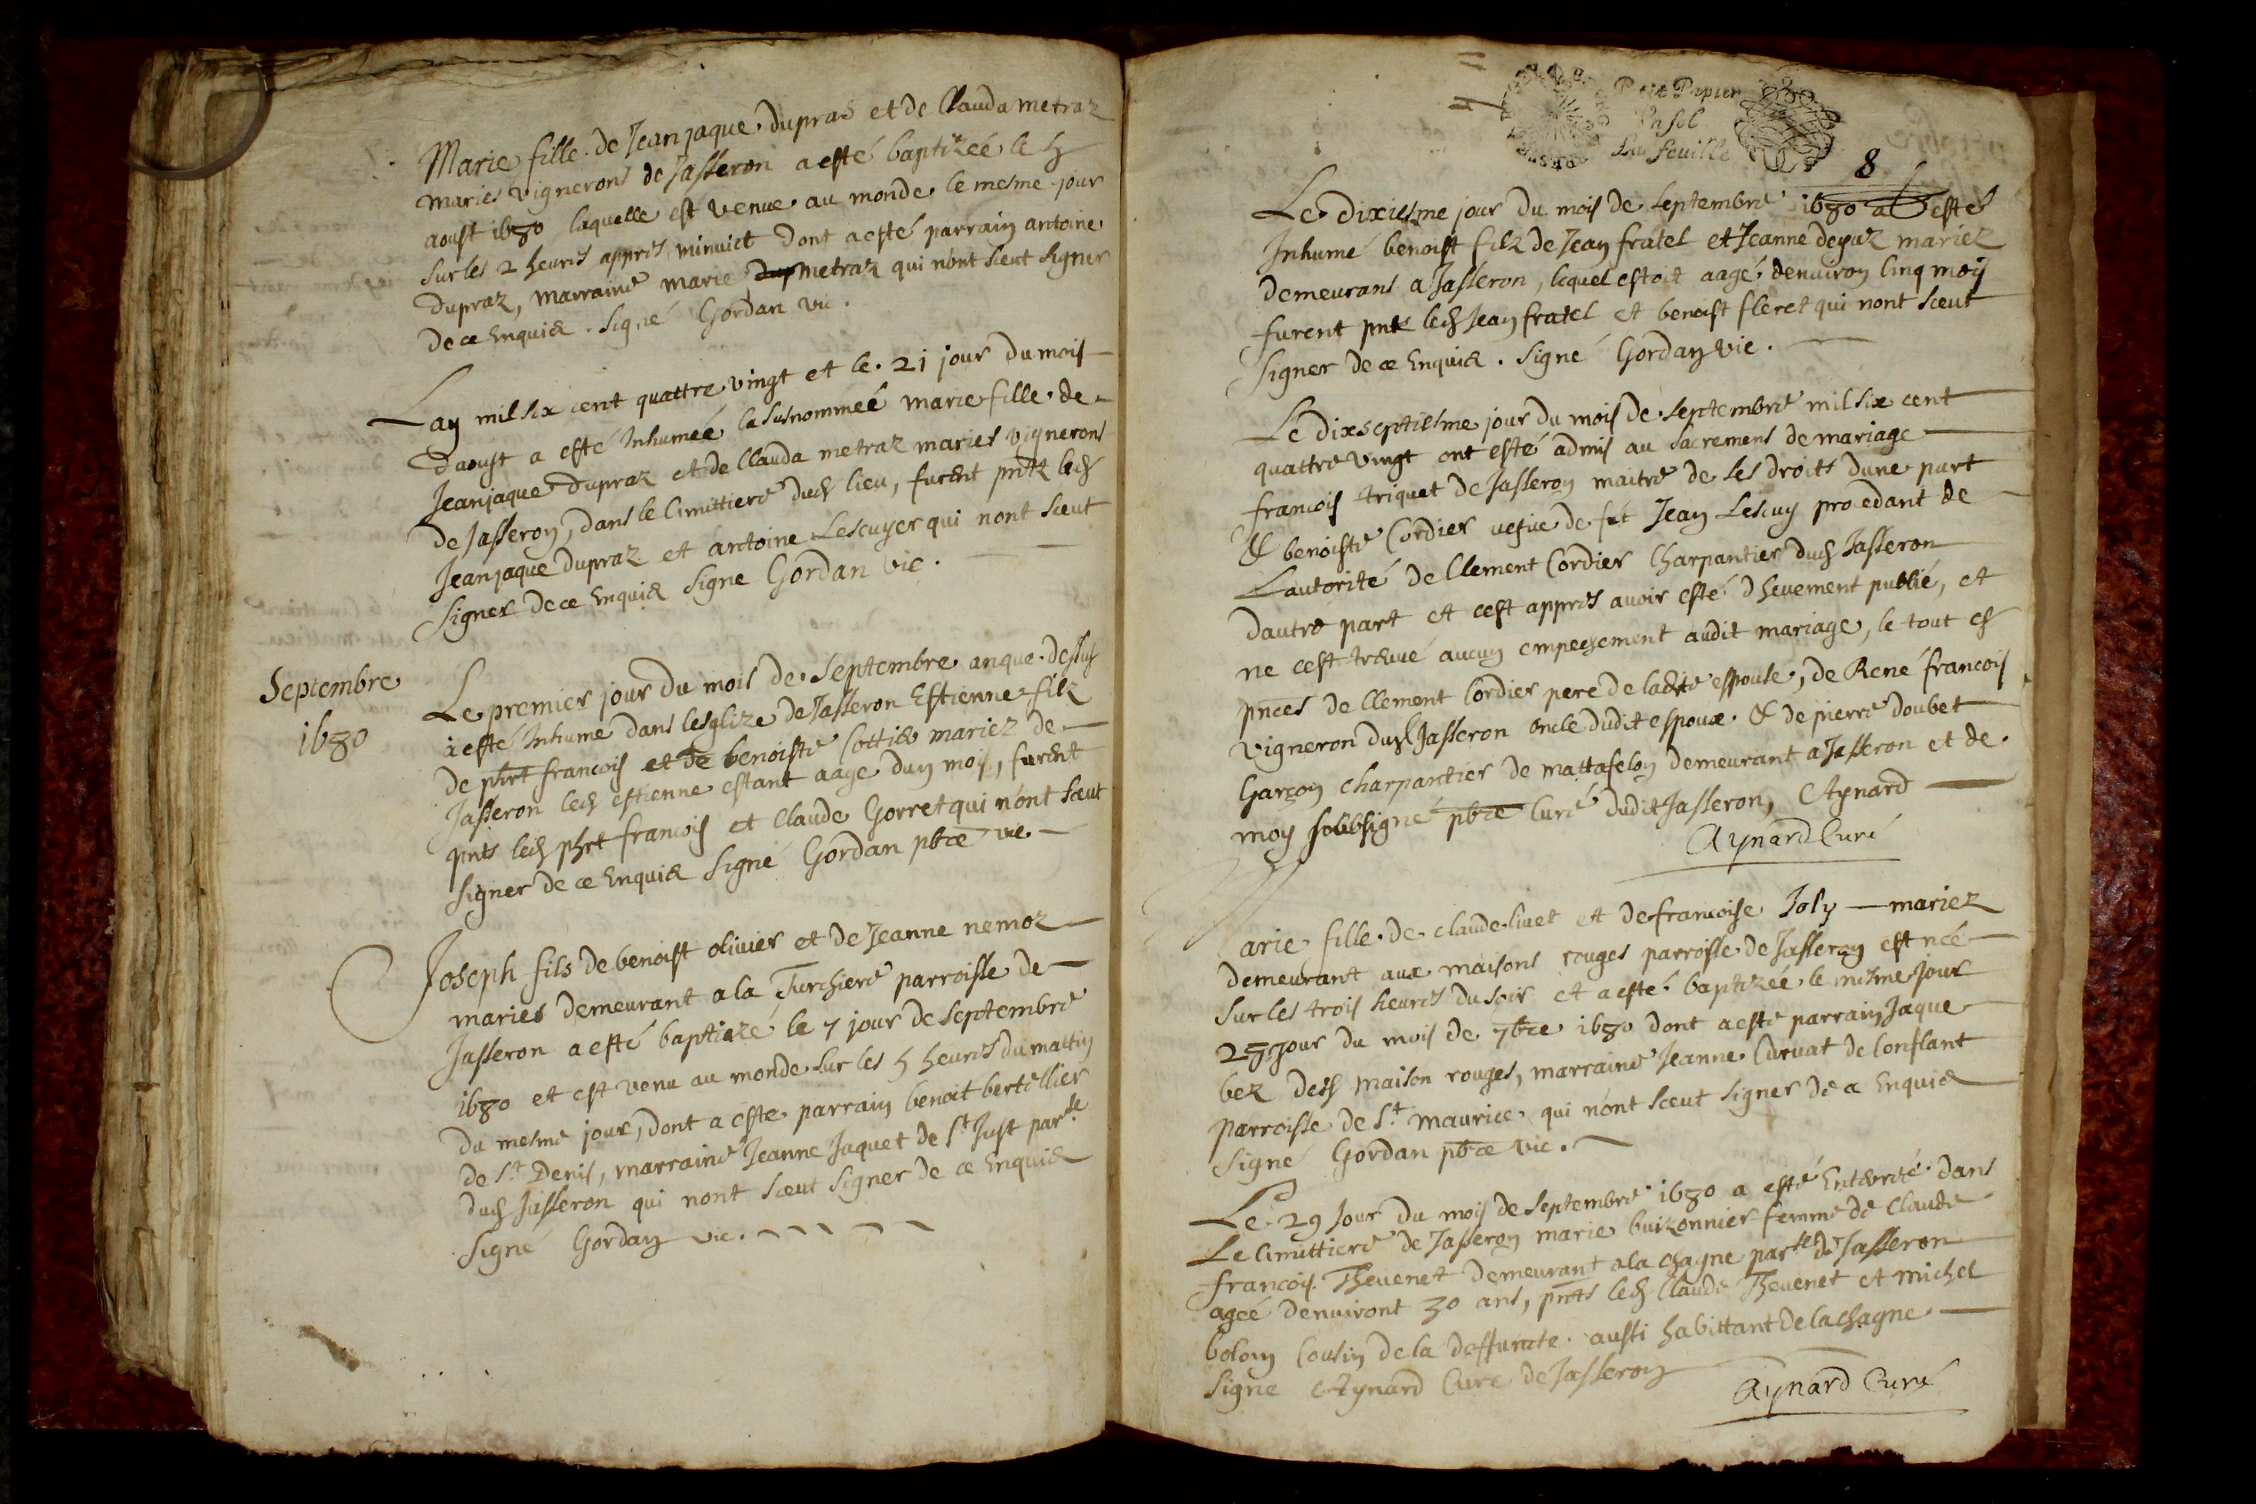 Marie fille de Jean jaque dupras et de Clauda metraz
maries vignerons de Jasseron a esté baptizeé le 5
aoust 1680 laquelle est venue au monde le mesme jour
sur les 2 heures appres minuict dont a esté parrain antoine
dupraz, marraine marie dup metraz qui n'ont sceut signer
de ce Enquis. Signé Gordan vic.
Lan mil six cent quattre vingt et le 21 jour du mois
daoust a esté Inhumeé la susnommeé marie fille de
Jeanjaque dupraz et de Clauda metraz maries vignerons
de Jasseron, dans le Cimittiere dud lieu, furent pntz led
Jeanjaque dupraz et antoine Lescuyer qui nont sceut
signer de ce Enquis Signe Gordan vic.
Septembre
1680
Le premier jour du mois de Septtembre an que dessus
a esté Inhumé dans lesglize de Jasseron Estienne filz
de phrt francois et de benoiste Cottier mariez de
Jasseron led estienne estant aage dun mois, furent
pnts led phrt francois et Claude Gorret qui n'ont sceut
signer de ce Enquis Signé Gordan pbre vic.
Joseph fils de benoist olivier et de Jeanne nemoz
maries demeurant a la Turchiere parroisse de
Jasseron a esté baptizé le 7 jour de Septembre
1680 et est venu au monde sur les 5 heures du mattin
du mesme jour, dont a este parrain benoit bertellier
de St Denis, marraine Jeanne Jaquet de St Just par.sse
dud Jasseron qui nont sceut signer de ce Enquis
Signé Gordan vic.
Petit Papier
Un sol
La feuille
8
Le dixiesme jour du mois de Septembre 1680 a esté
Inhumé benoist filz de Jean fratel et Jeanne depaz mariez
demeurans a Jasseron, lequel estoit aagé denuiron Cinq mois
furent pnts led Jean fratel et benoist fleret qui nont sceut
signer de ce Enquis. Signé Gordan vic.
Le dixseptiesme jour du mois de Septembre mil six cent
quattre vingt ont esté admis au sacrement de mariage
francois triquet de Jasseron maitre de ses droits dune part
& benoiste Cordier vefue de fut Jean Lescuy procedant de
Lautorité de Clement Cordier Charpantier dud Jasseron
dautre part et cest appres auoir esté dheuement publié, et
ne cest treuué aucun empeschement audit mariage, le tout es
pnces de Clement Cordier pere de ladite espouse, de René francois
vigneron dud Jasseron oncle dudit espoux & de pierre doubet
Garçon charpantier de mattafelon demeurant a Jasseron et de
moy soubsigné pbre Curé dudit Jasseron, Aynard
Aynard Curé
Marie fille de claude liuet et de francoise Joly mariez
demeurant aux maisons rouges parroisse de Jasseron est neé
sur les trois heures du soir et a esté baptizeé le mesme jour
25 jour du mois de 7bre 1680 dont a este parrain Jaque
bez desd maison rouges, marraine Jeanne Curuat de Conflant
parroisse de St maurice qui n'ont sceut signer de ce Enquis
Signé Gordan pbre vic.
Le 29 Jour du mois de Septembre 1680 a esté Enterré dans
Le Cimittiere de Jasseron marie buizonnier femme de Claude
francois Theuenet demeurant a la chagne par.sse de Jasseron
ageé denuiront 30 ans, pnts led Claude Theuenet et michel
bolom Cousin de la deffuncte aussi habittant de la chagne
Signe Aynard Cure de Jasseron
Aynard Curé